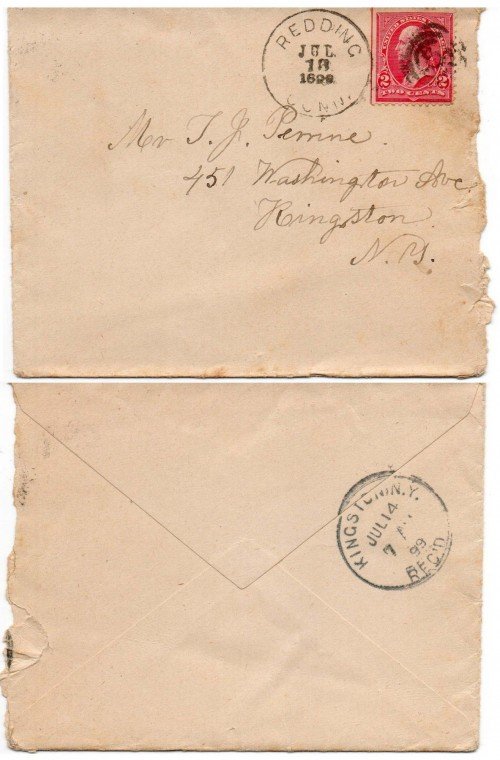 REDDING
JUL
13
1899
CONN.
UNITED STATES
2 2
TWO CENTS
Mr T. J. Perrine.
451 Washington Ave
Kingston.
N. Y.
KINGSTON, N.Y.
JUL 14
7 A
99
REC'D.